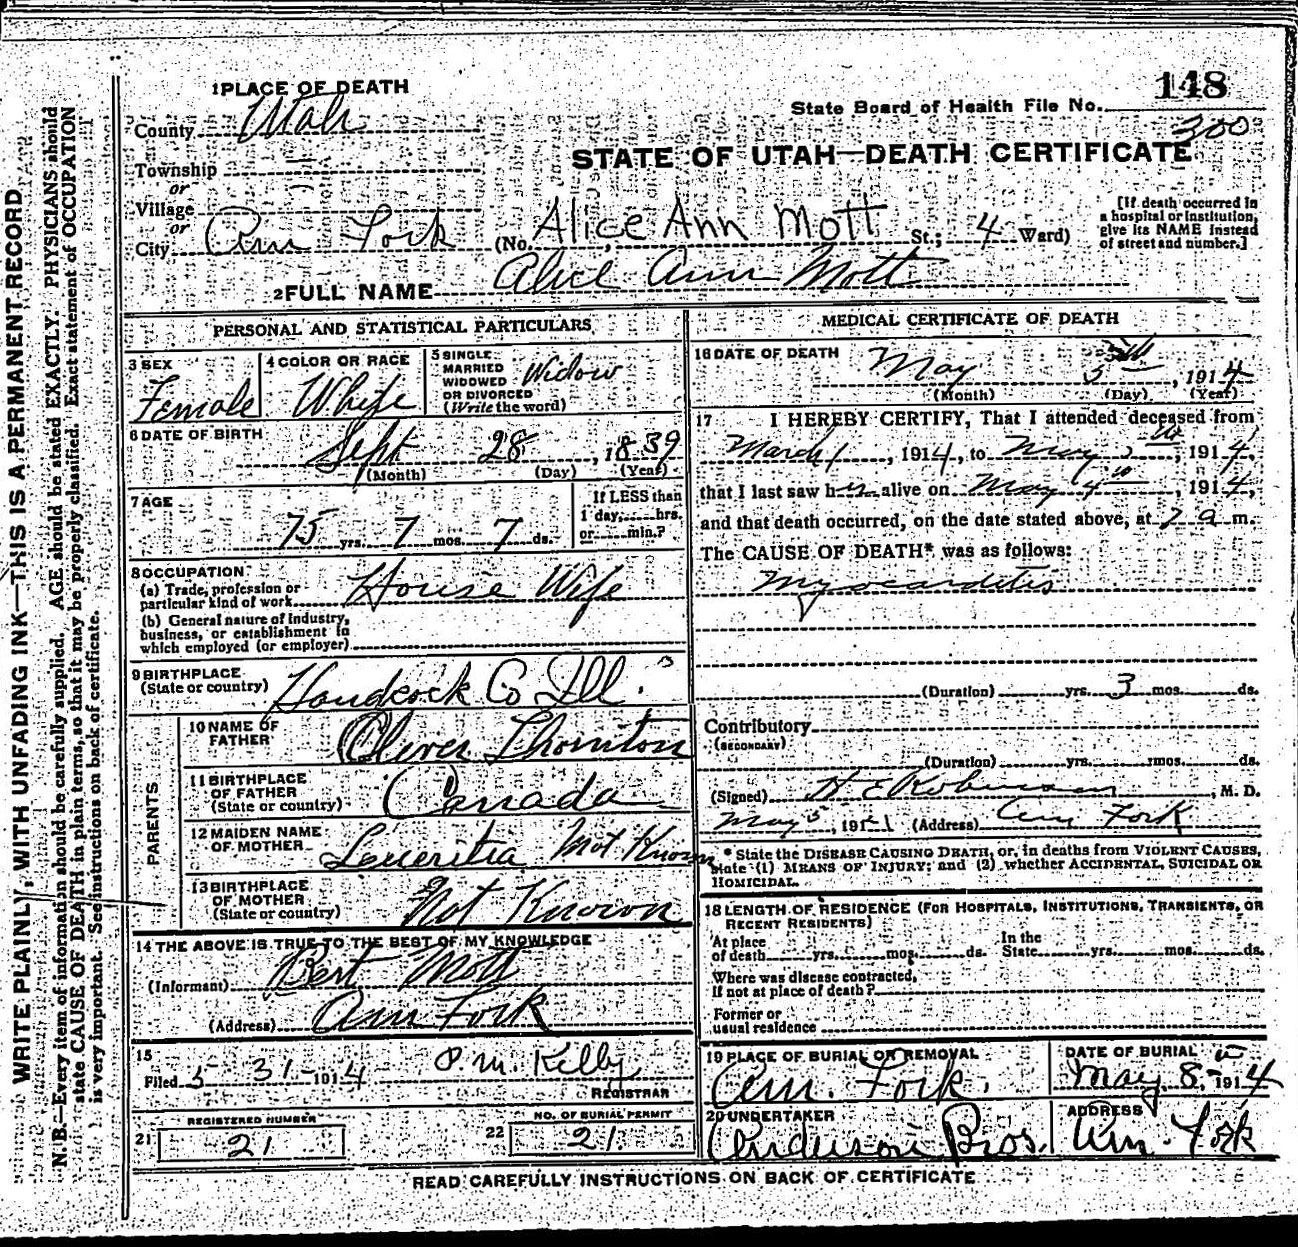 148
State Board of Health File No.
300
STATE OF UTAH—DEATH CERTIFICATE
1 PLACE OF DEATH
County Utah
Township
or
Village
or
City Am Fork (No. Alice Ann Mott St.; 4 Ward)
[If death occurred in
a hospital or institution,
give its NAME instead
of street and number.]
2 FULL NAME Alice Ann Mott
PERSONAL AND STATISTICAL PARTICULARS
3 SEX
Female
4 COLOR OR RACE
White
5 SINGLE
MARRIED
WIDOWED
OR DIVORCED
(Write the word)
Widow
6 DATE OF BIRTH
Sept 28, 1839
(Month) (Day) (Year)
7 AGE
75 yrs. 7 mos. 7 ds.
If LESS than
1 day, hrs.
or min.?
8 OCCUPATION
(a) Trade, profession or
particular kind of work House Wife
(b) General nature of industry,
business, or establishment in
which employed (or employer)
9 BIRTHPLACE
(State or country) Handcock Co Ill.
PARENTS
10 NAME OF
FATHER Oliver Thornton
11 BIRTHPLACE
OF FATHER
(State or country) Canada
12 MAIDEN NAME
OF MOTHER Not Known
13 BIRTHPLACE
OF MOTHER
(State or country) Not Known
14 THE ABOVE IS TRUE TO THE BEST OF MY KNOWLEDGE
(Informant) Bert Mott
(Address) Am Fork
15
Filed 5 31 - 1914 P M. Kelly
REGISTRAR
REGISTERED NUMBER
21 21
NO. OF BURIAL PERMIT
22 21
MEDICAL CERTIFICATE OF DEATH
16 DATE OF DEATH
May 5, 1914
(Month) (Day) (Year)
17 I HEREBY CERTIFY, That I attended deceased from
March 1, 1914, to May, 1914,
that I last saw her alive on May 4, 1914,
and that death occurred, on the date stated above, at 7 a m.
The CAUSE OF DEATH* was as follows:
Myocarditis
(Duration) yrs. 3 mos. ds.
Contributory
(SECONDARY)
(Duration) yrs. mos. ds.
(Signed) H E Robinson, M. D.
May 5, 191 (Address) Am Fork
* State the DISEASE CAUSING DEATH, or, in deaths from VIOLENT CAUSES,
state (1) MEANS OF INJURY; and (2) whether ACCIDENTAL, SUICIDAL OR
HOMICIDAL.
18 LENGTH OF RESIDENCE (FOR HOSPITALS, INSTITUTIONS, TRANSIENTS, OR
RECENT RESIDENTS)
At place
of death yrs. mos. ds.
In the
State yrs. mos. ds.
Where was disease contracted,
If not at place of death?
Former or
usual residence
19 PLACE OF BURIAL OR REMOVAL
Am. Fork.
DATE OF BURIAL
May 8, 1914
20 UNDERTAKER
Anderson Bros.
ADDRESS
Am. Fork
READ CAREFULLY INSTRUCTIONS ON BACK OF CERTIFICATE
WRITE PLAINLY, WITH UNFADING INK—THIS IS A PERMANENT RECORD
N. B.—Every item of information should be carefully supplied. AGE should be stated EXACTLY. PHYSICIANS should
state CAUSE OF DEATH in plain terms, so that it may be properly classified. Exact statement of OCCUPATION
is very important. See instructions on back of certificate.